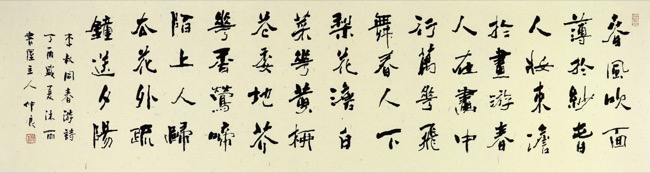 春風吹面
薄於紗旾
人妝束澹
於畫游春
人在畫中
行萬華飛
舞春人下
梨花澹白
菜華黃柳
花委地芥
華香鶯啼
陌上人歸
去花外疏
鐘送夕陽
李叔同春游詩
丁酉歲夏沐雨
主人仲良